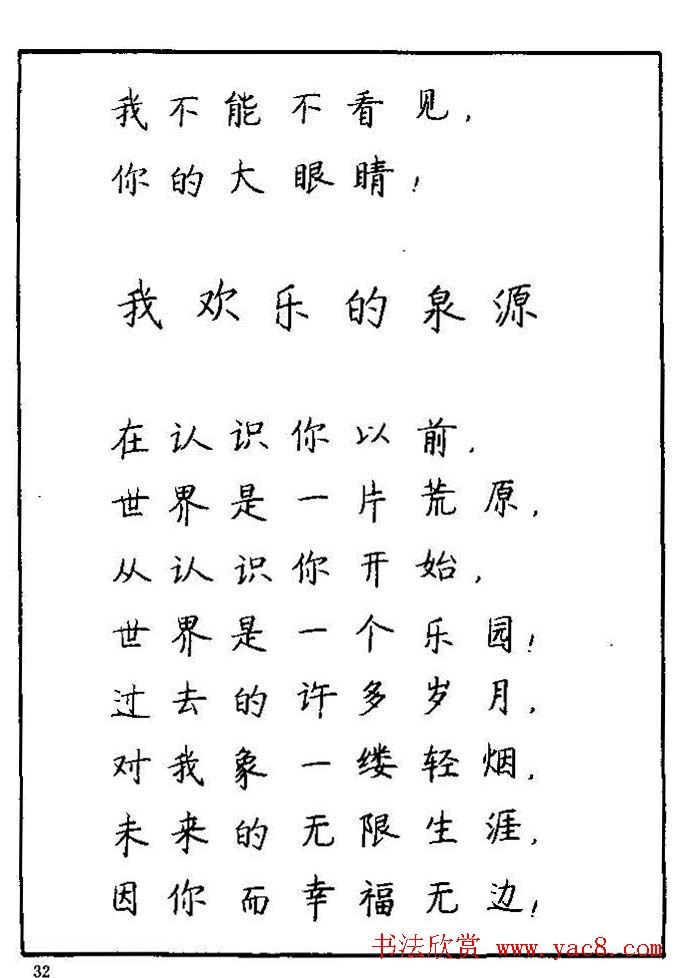 我不能不看见，
你的大眼睛！
我欢乐的泉源
在认识你以前，
世界是一片荒原，
从认识你开始，
世界是一个乐园！
过去的许多岁月，
对我象一缕轻烟，
未来的无限生涯，
因你而幸福无边！
书法欣赏 www.yac8.com
32